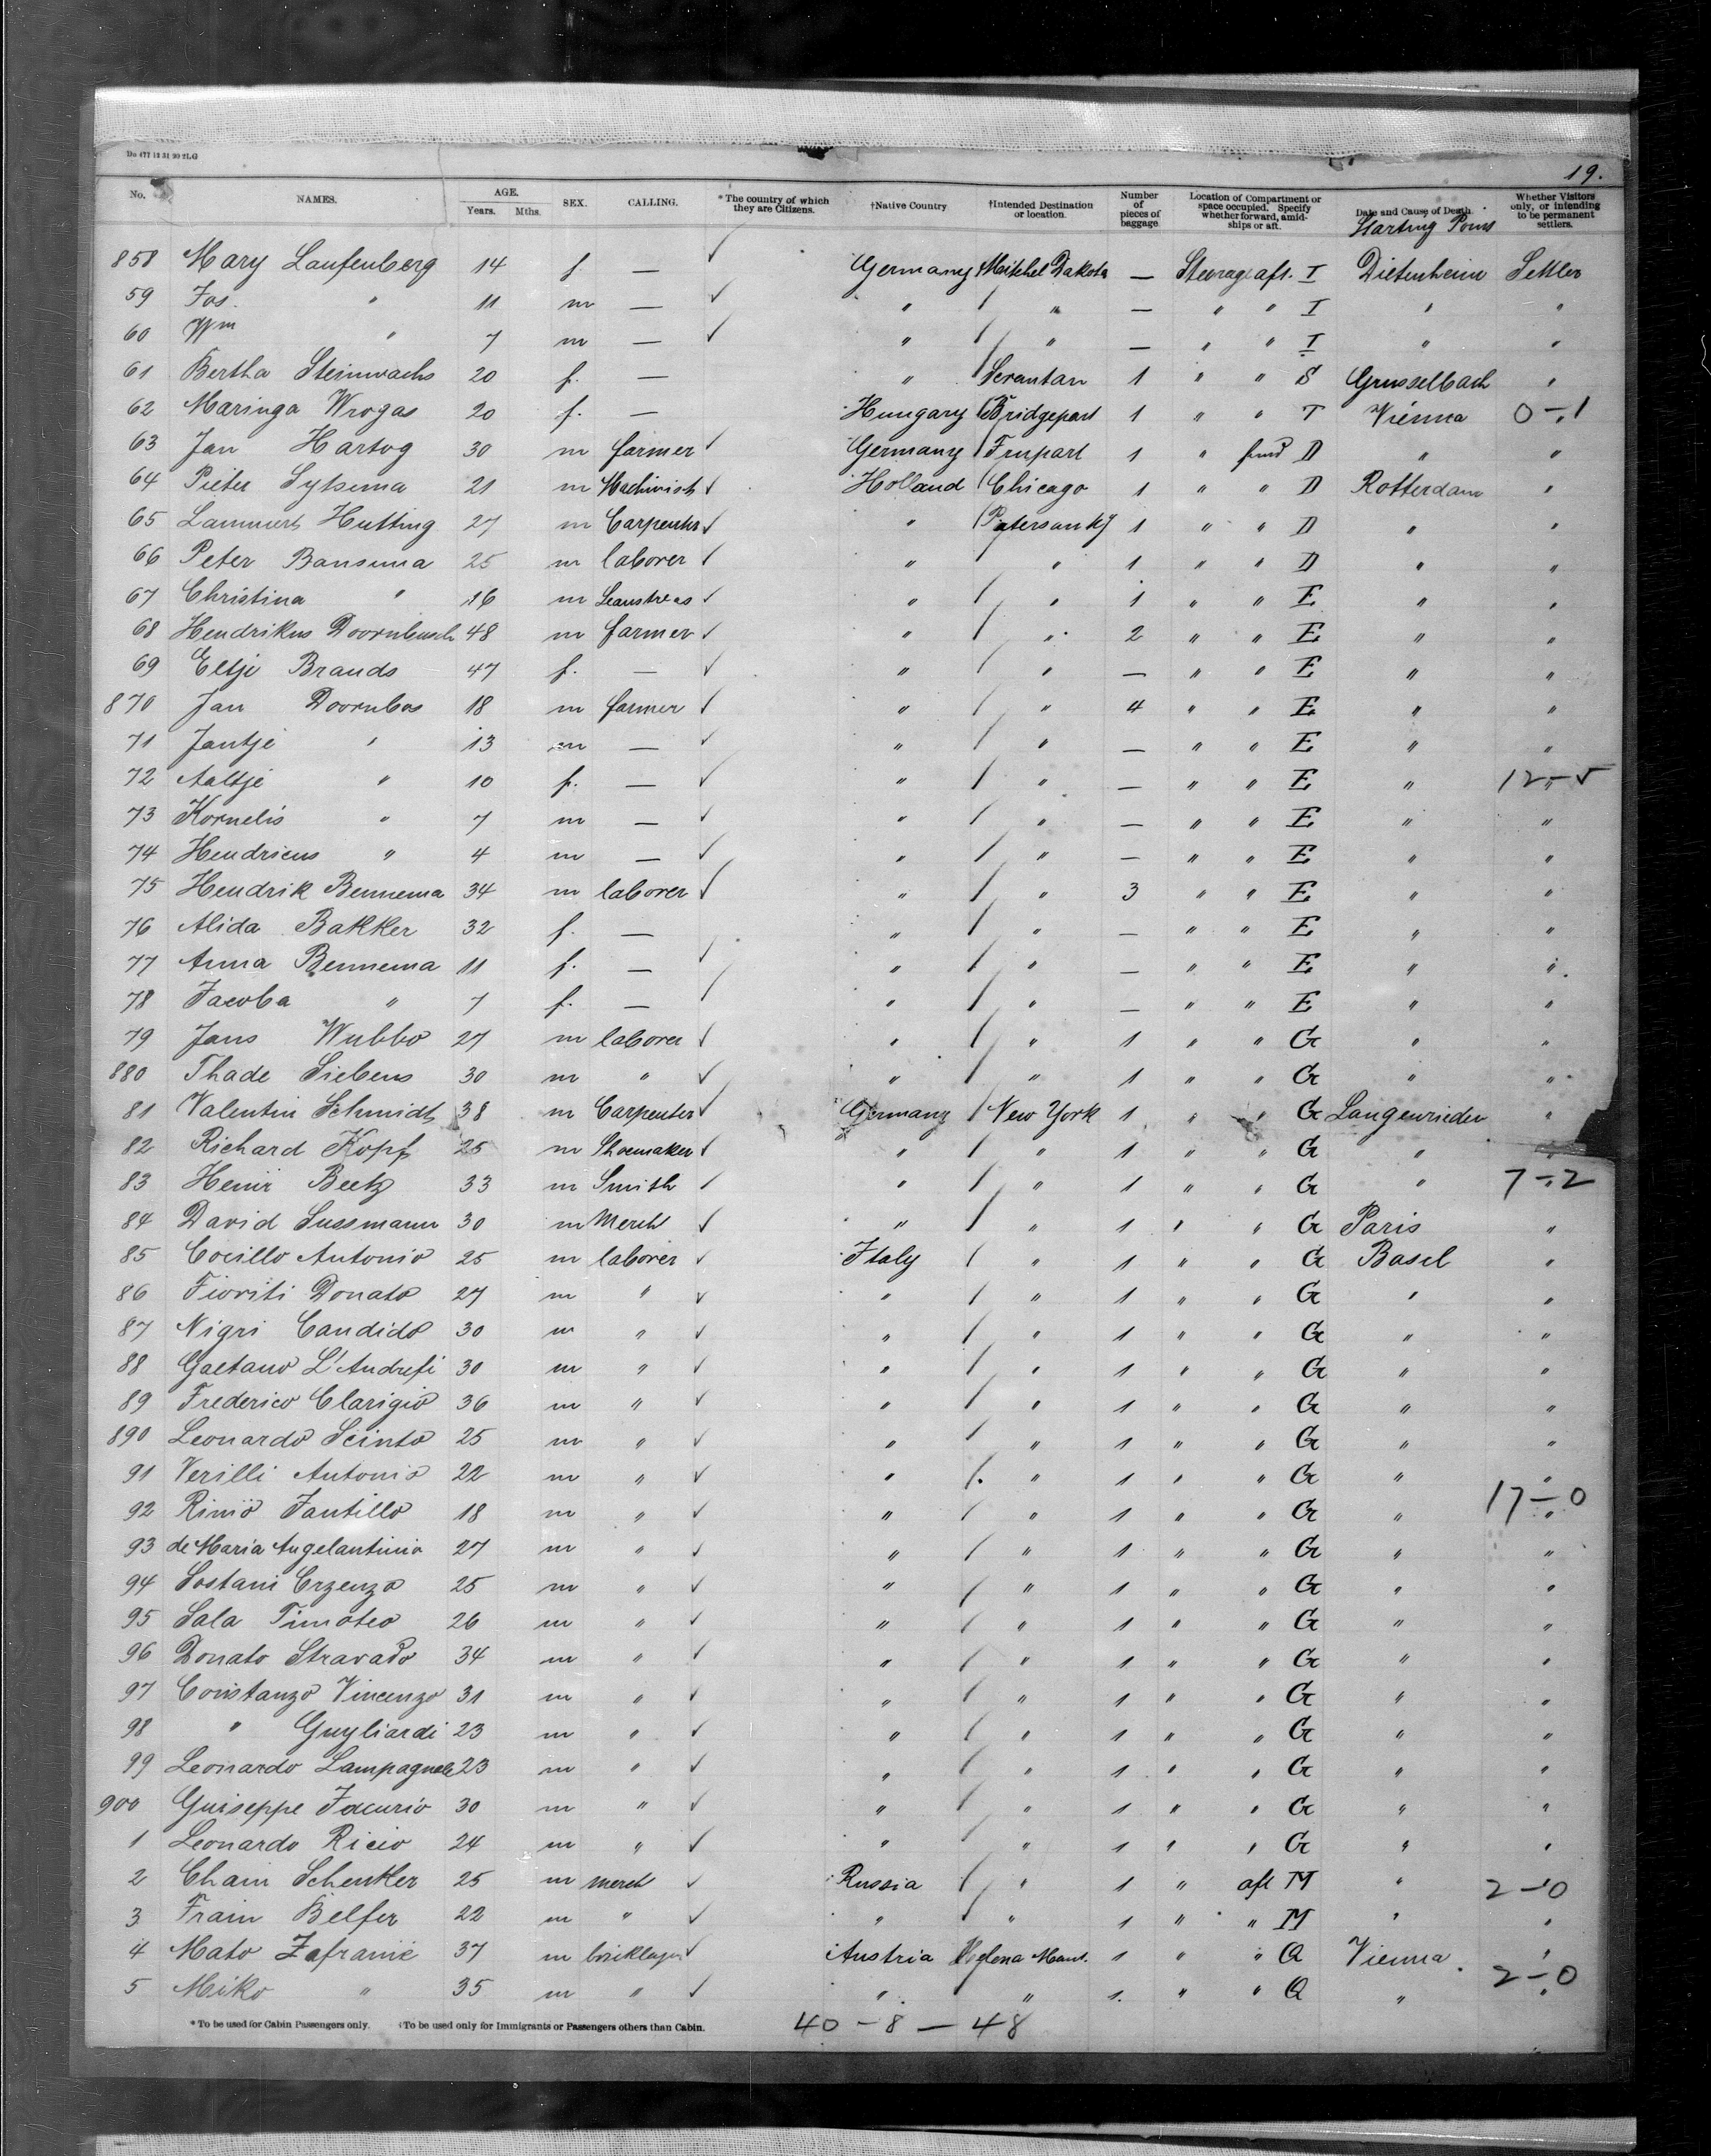 Do 477 12 31 90 2LG
19.
No. NAMES. AGE. Years. Mths. SEX. CALLING. *The country of which they are Citizens. †Native Country †Intended Destination or location. Number of pieces of baggage Location of Compartment or space occupied. Specify whether forward, amidships or aft. Date and Cause of Death. Starting Point Whether Visitors only, or intending to be permanent settlers.
858 Mary Laufenberg 14 f — ✓ Germany Mitchel Dakota — Steerage aft. I Dietenheim Settler
59 Jos. " 11 m — ✓ " " — " " I " "
60 Wm " 7 m — ✓ " " — " " I " "
61 Bertha Steinwachs 20 f. — " Scrantan 1 " " S Grusselbach "
62 Maringa Wrogas 20 f. — Hungary Bridgeport 1 " " T Vienna " 0-1
63 Jan Hartog 30 m farmer ✓ Germany Freeport 1 " fwd D " "
64 Pieter Sytsema 21 m Machinist ✓ Holland Chicago 1 " " D Rotterdam "
65 Lammert Hutting 27 m Carpenter ✓ " Paterson NJ 1 " " D " "
66 Peter Bansema 25 m laborer ✓ " " 1 " " D " "
67 Christina " 16 m Seamstress ✓ " " 1 " " E " "
68 Hendrikus Doornbusch 48 m farmer ✓ " " 2 " " E " "
69 Eltje Brands 47 f. — ✓ " " — " " E " "
870 Jan Doornbos 18 m farmer ✓ " " 4 " " E " "
71 Jantje " 13 m — ✓ " " — " " E " "
72 Aaltje " 10 f. — ✓ " " — " " E " " 12-5
73 Kornelis " 7 m — ✓ " " — " " E " "
74 Hendricus " 4 m — ✓ " " — " " E " "
75 Hendrik Bennema 34 m laborer ✓ " " 3 " " E " "
76 Alida Bakker 32 f. — " " — " " E " "
77 Anna Bennema 11 f. — ✓ " " — " " E " "
78 Jacoba " 7 f. — ✓ " " — " " E " "
79 Jans Wubbo 27 m laborer ✓ " " 1 " " G " "
880 Thade Siebens 30 m " ✓ " " 1 " " G " "
81 Valentin Schmidt 38 m Carpenter ✓ Germany New York 1 " " G Langenrieden "
82 Richard Kopf 25 m Shoemaker ✓ " " 1 " " G " "
83 Henri Beetz 33 m Smith ✓ " " 1 " " G " " 7-2
84 David Sussmann 30 m Merch ✓ " " 1 " " G Paris "
85 Cocillo Antonio 25 m laborer ✓ Italy " 1 " " G Basel "
86 Fioriti Donato 27 m " ✓ " " 1 " " G " "
87 Nigri Candido 30 m " ✓ " " 1 " " G " "
88 Gaetano L'Andrefi 30 m " ✓ " " 1 " " G " "
89 Frederico Clarigio 36 m " ✓ " " 1 " " G " "
890 Leonardo Scinto 25 m " ✓ " " 1 " " G " "
91 Verilli Antonio 22 m " ✓ " " 1 " " G " "
92 Rinio Fantillo 18 m " ✓ " " 1 " " G " " 17-0
93 de Maria Angelantinio 27 m " ✓ " " 1 " " G " "
94 Sostani Crzenzo 25 m " ✓ " " 1 " " G " "
95 Sala Timoteo 26 m " ✓ " " 1 " " G " "
96 Donato Stravado 34 m " ✓ " " 1 " " G " "
97 Constanzo Vincenzo 31 m " ✓ " " 1 " " G " "
98 " Guyliardi 23 m " ✓ " " 1 " " G " "
99 Leonardo Lampagnele 23 m " ✓ " " 1 " " G " "
900 Guiseppe Jacurio 30 m " ✓ " " 1 " " G " "
1 Leonardo Ricio 24 m " ✓ " " 1 " " G " "
2 Chain Schenker 25 m merch ✓ Russia " 1 " aft M " " 2-0
3 Frain Belfer 22 m " ✓ " " 1 " " M " "
4 Mato Zafranic 37 m bricklayer ✓ Austria Helena Mont. 1 " " Q Vienna "
5 Miko " 35 m " ✓ " " 1. " " Q " " 2-0
*To be used for Cabin Passengers only. †To be used only for Immigrants or Passengers others than Cabin. 40 - 8 - 48